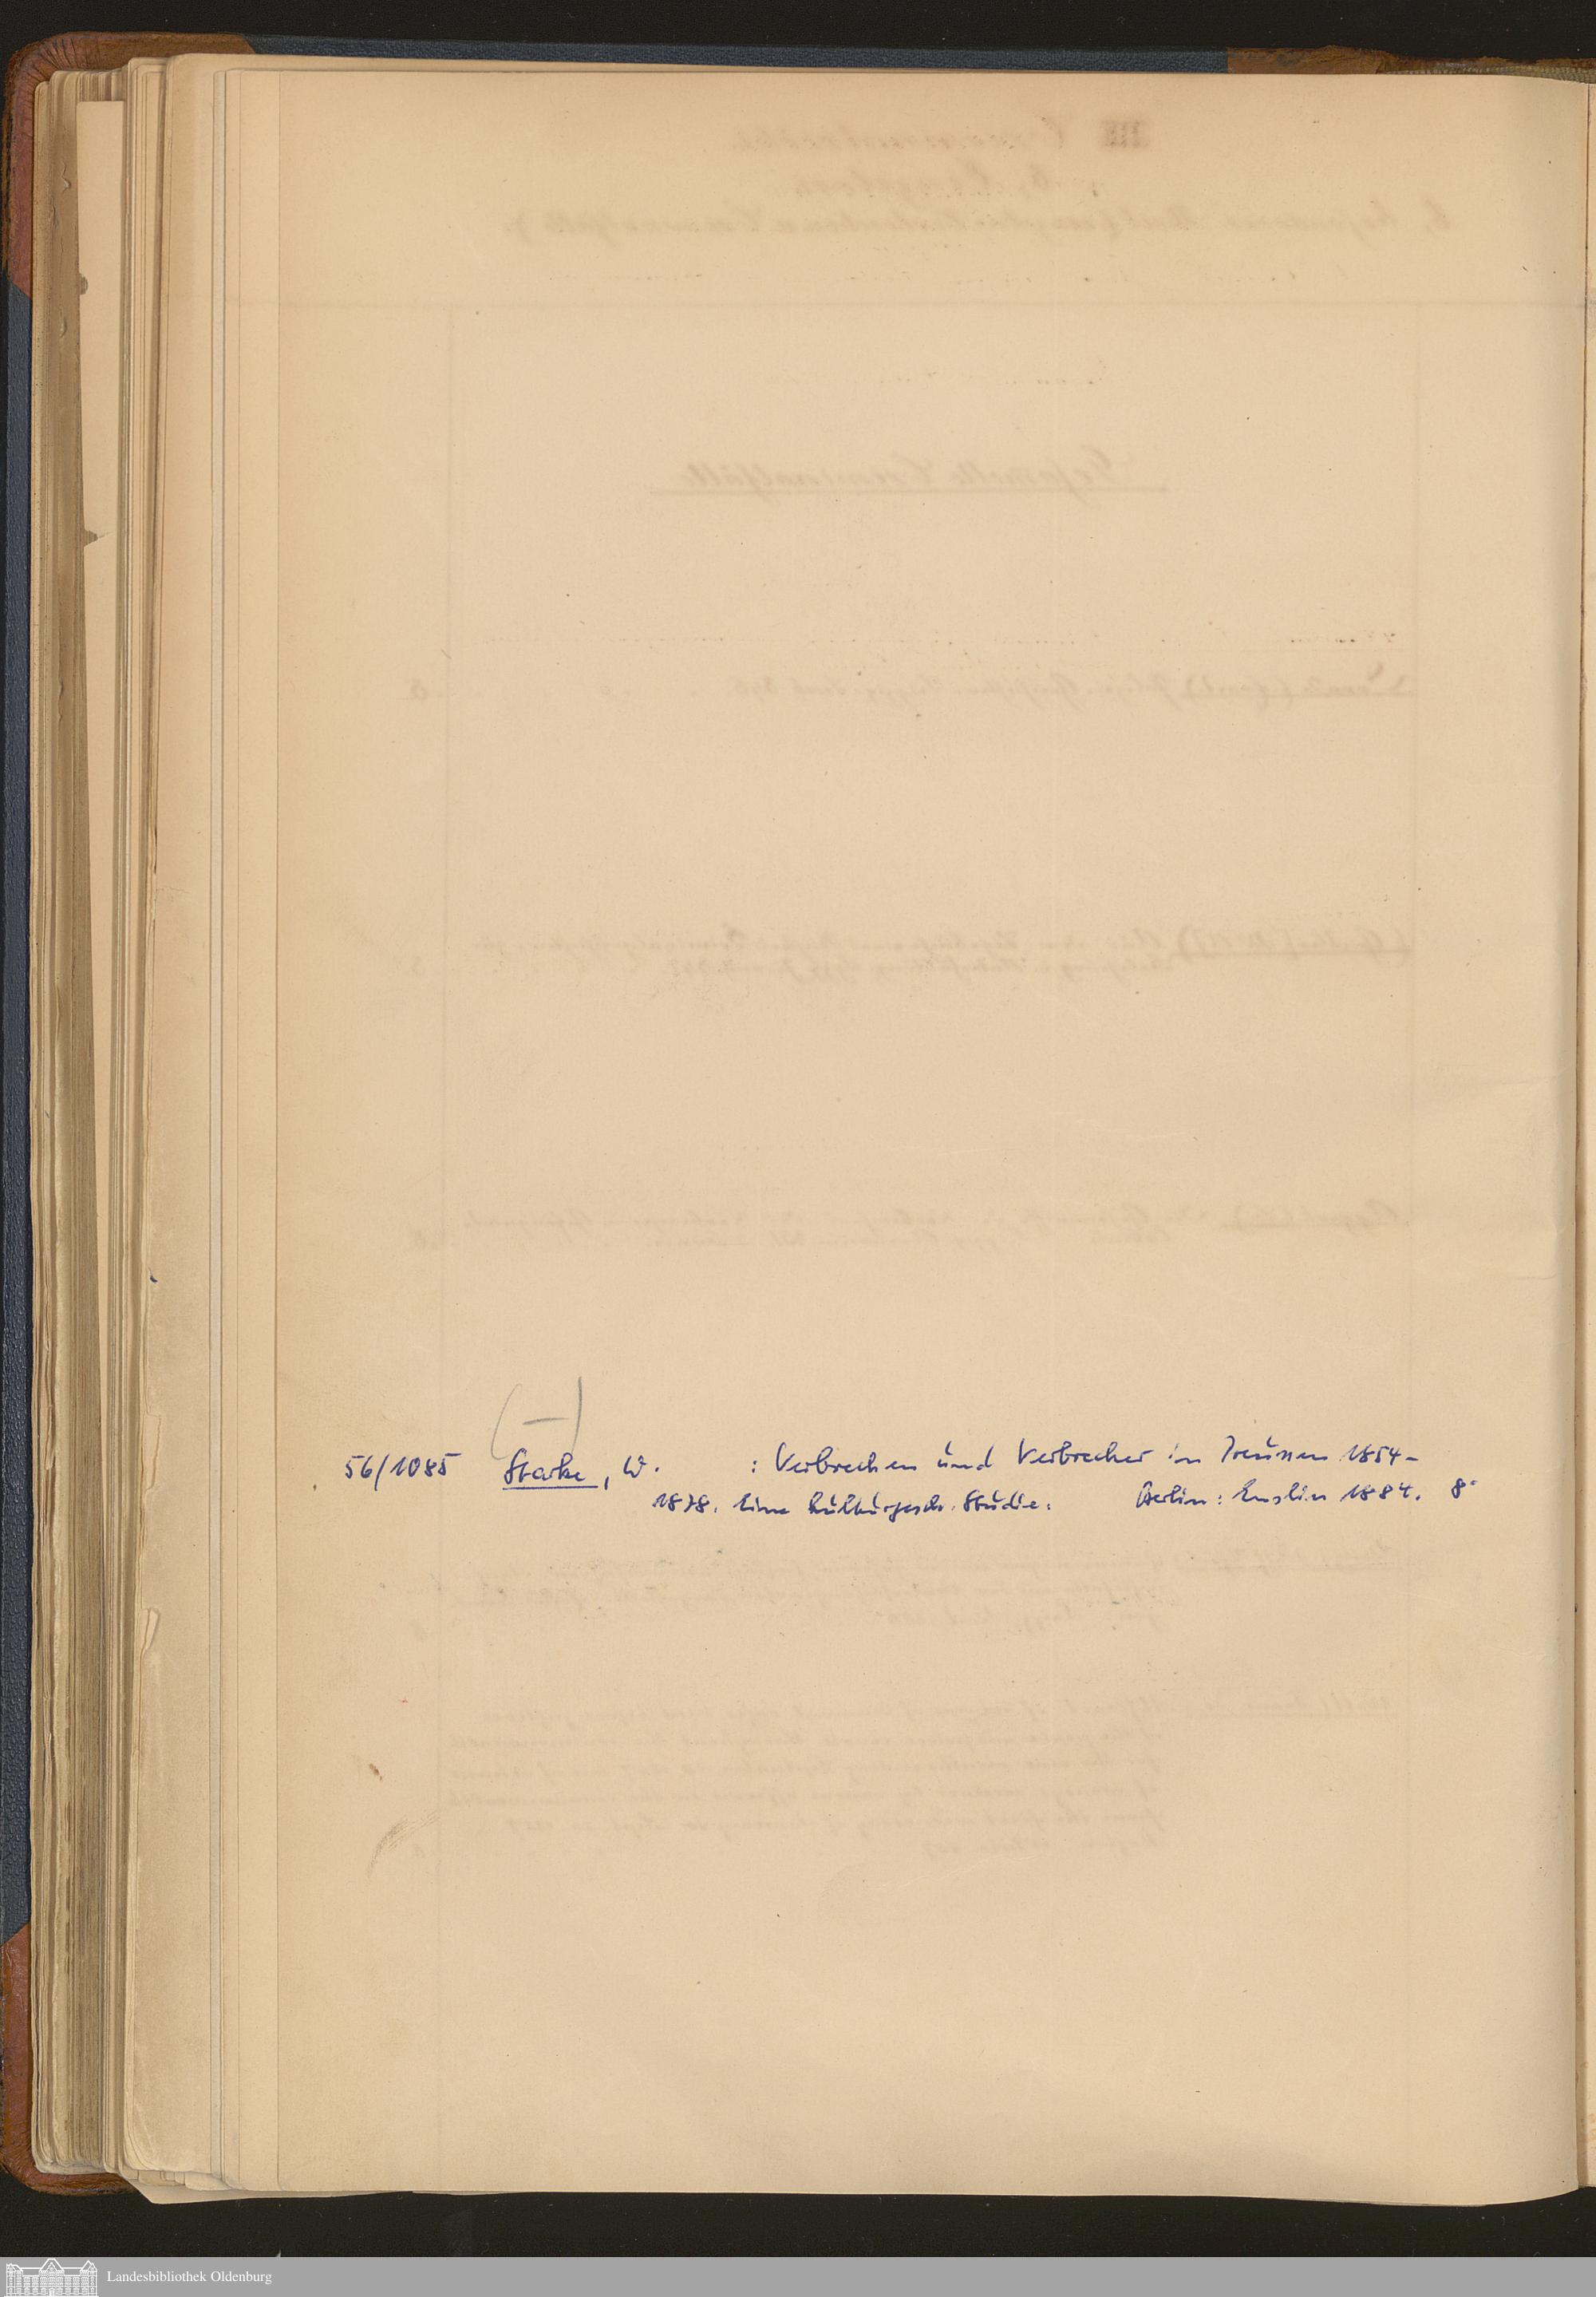 (—)
56/1085 Starke, W. : Verbrechen und Verbrecher in Preussen 1854-
1878. Eine kulturgesch. Studie. Berlin: Enslin 1884. 8°
Landesbibliothek Oldenburg